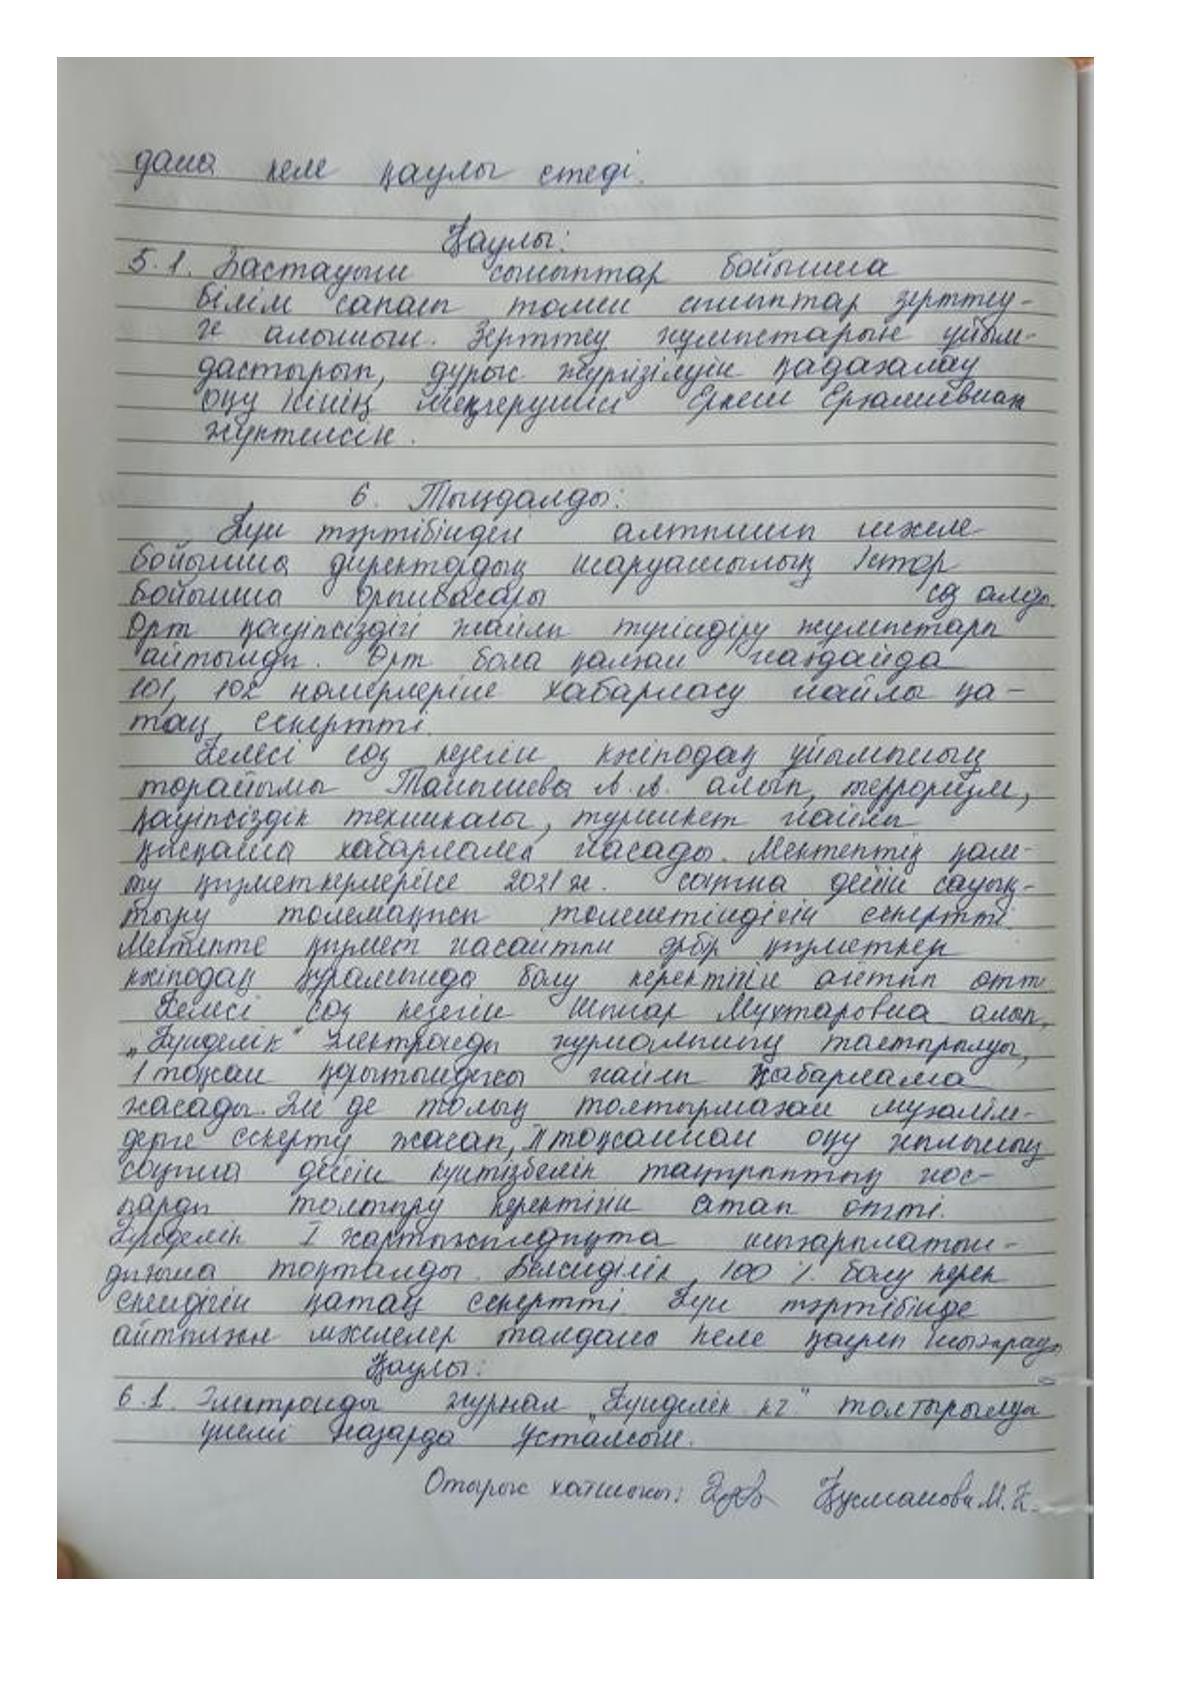 дана келе қаулы етеді.
Қаулы:
5.1. Бастауыш сыныптар бойынша
білім сапасы төмен сыныптар зерттеу-
ге алынсын. Зерттеу жұмыстарын ұйым-
дастырып, дұрыс жүргізілуін қадағалау
оқу ісінің меңгерушісі Еркеш
жүктелсін.
6. Тыңдалды:
Күн тәртібіндегі алтыншы мәселе
бойынша директордың шаруашылық істер
бойынша орынбасары сөз алды.
Өрт қауіпсіздігі жайлы түсіндіру жұмыстары
айтылды. Өрт бола қалған жағдайда
101, 102 номерлеріне хабарласу жайлы қа-
таң ескертті.
Келесі сөз кезегін кәсіподақ ұйымының
төрайымы Танышева А.А. алып, терроризм,
қауіпсіздік техникасы, турникет жайлы
қысқаша хабарлама жасады. Мектептің қам-
ту қызметкерлеріне 2021 ж. соңына дейін сауық-
тыру төлемақысы төленетіндігін ескертті.
Мектепте қызмет жасайтын әрбір қызметкер
кәсіподақ құрамында болу керектігін айтып өтті.
Келесі сөз кезегін Шынар Мұхтаровна алып,
„Күнделік" электронды журналының тастырылуы,
1 тоқсан қорытындысы жайлы хабарлама
жасады. Әлі де толық толтырмаған мұғалім-
дерге ескерту жасап, II тоқсаннан оқу жылының
соңына дейін күнтізбелік тақырыптық жос-
парды толтыру керектігін атап өтті.
Күнделік I жартыжылдықта шығарылатын-
дығына тоқталды. Белсенділік 100 % болу керек
екендігін қатаң ескертті. Күн тәртібінде
айтылған мәселелер талдана келе қаулы шығарады
Қаулы:
6.1. Электронды журнал „Күнделік кz" толтырылуы
үнемі назарда ұсталсын.
Отырыс хатшысы: Құсманова М.К.